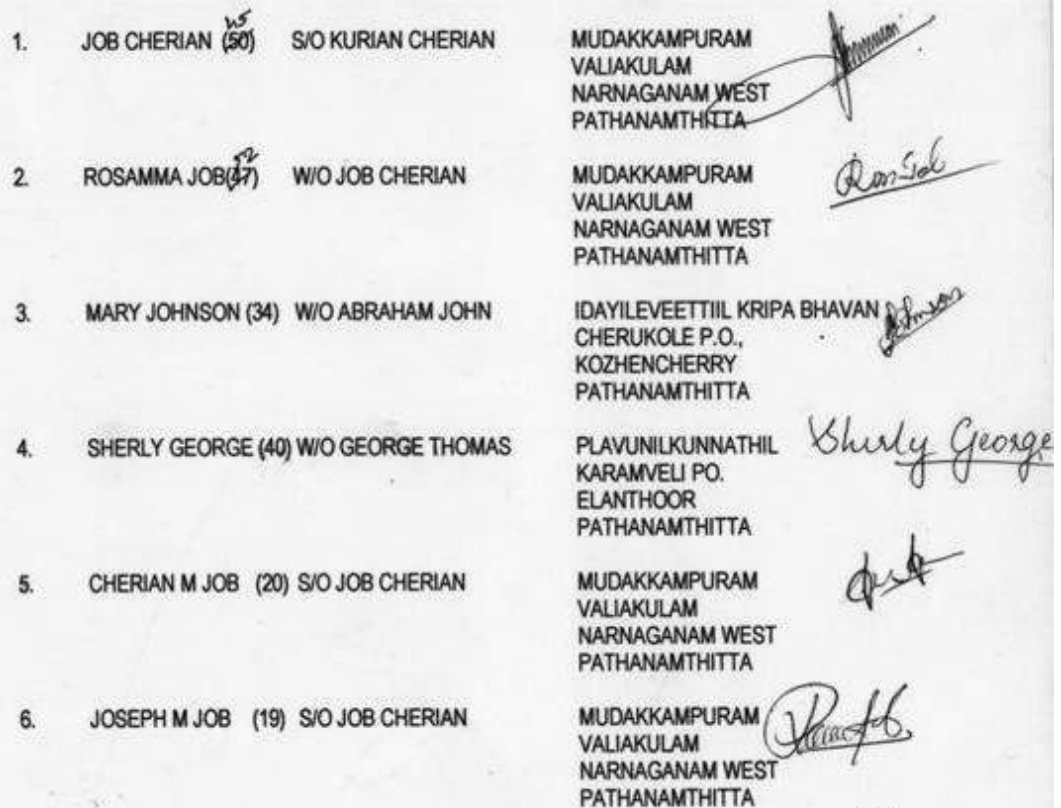 1. JOB CHERIAN (50) S/O KURIAN CHERIAN MUDAKKAMPURAM
VALIAKULAM
NARNAGANAM WEST
PATHANAMTHITTA
2. ROSAMMA JOB(47) W/O JOB CHERIAN MUDAKKAMPURAM
VALIAKULAM
NARNAGANAM WEST
PATHANAMTHITTA
3. MARY JOHNSON (34) W/O ABRAHAM JOHN IDAYILEVEETTIIL KRIPA BHAVAN
CHERUKOLE P.O.,
KOZHENCHERRY
PATHANAMTHITTA
4. SHERLY GEORGE (40) W/O GEORGE THOMAS PLAVUNILKUNNATHIL Sherly George
KARAMVELI PO.
ELANTHOOR
PATHANAMTHITTA
5. CHERIAN M JOB (20) S/O JOB CHERIAN MUDAKKAMPURAM
VALIAKULAM
NARNAGANAM WEST
PATHANAMTHITTA
6. JOSEPH M JOB (19) S/O JOB CHERIAN MUDAKKAMPURAM
VALIAKULAM
NARNAGANAM WEST
PATHANAMTHITTA